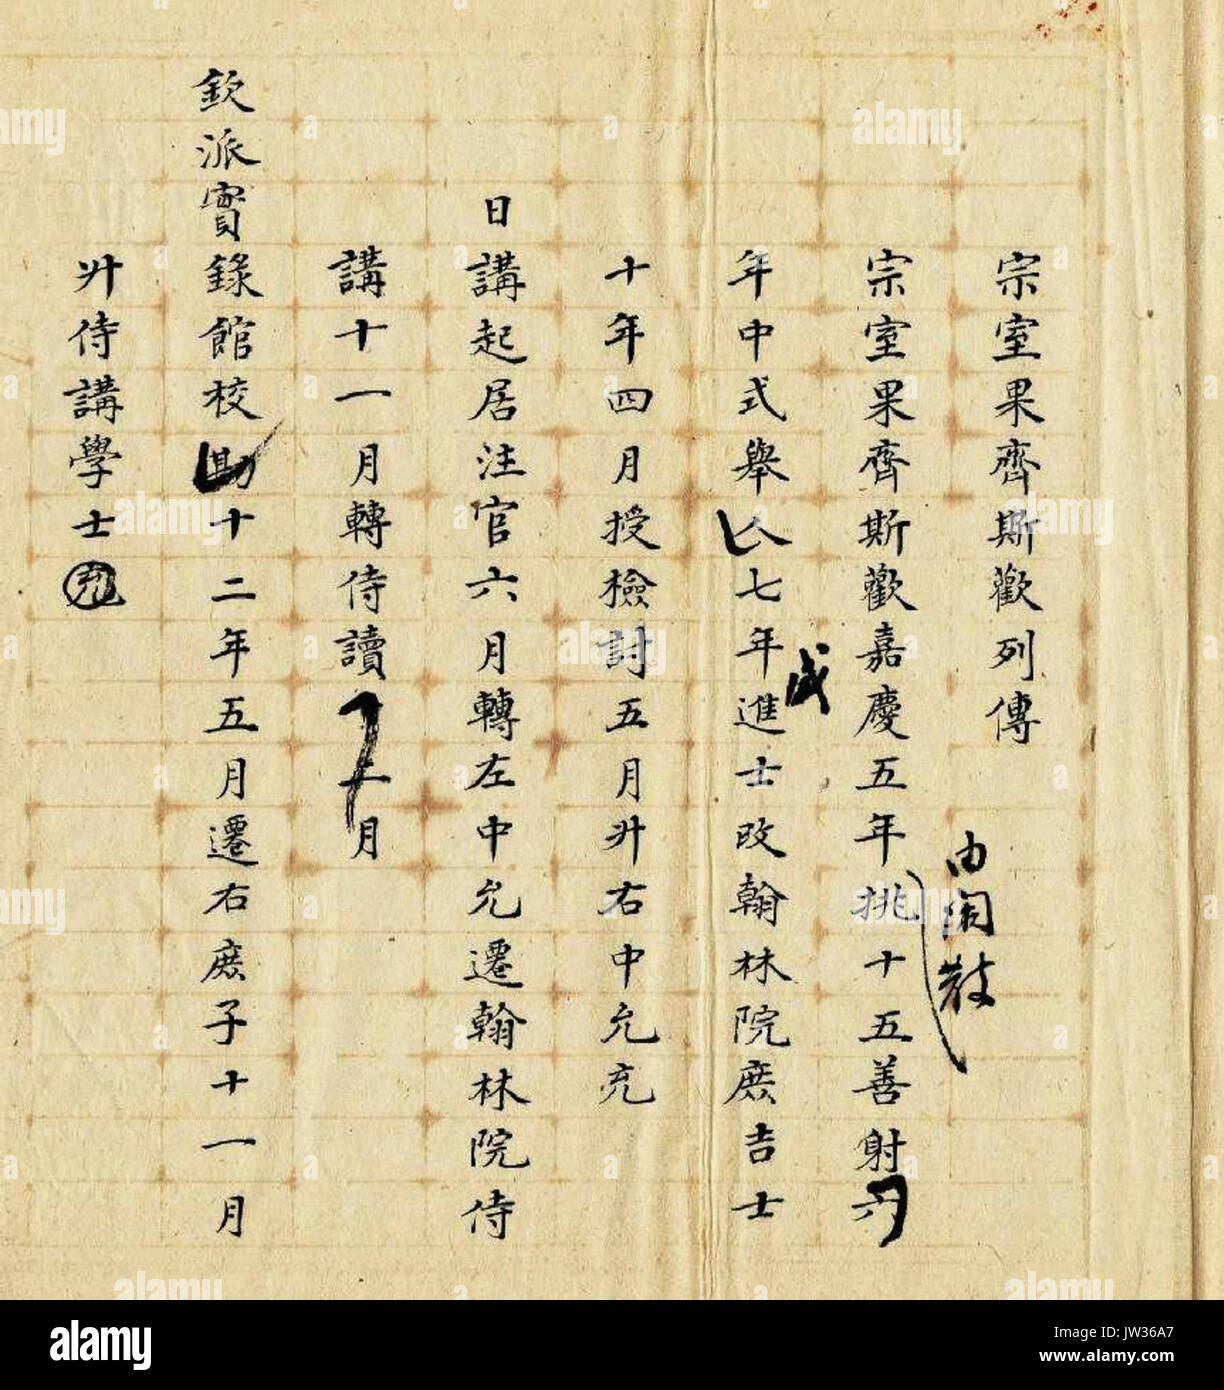 宗室果齊斯歡列傳
由閑散
宗室果齊斯歡嘉慶五年挑十五善射六
年中式舉人七年成進士改翰林院庶吉士
十年四月授檢討五月升右中允充
日講起居注官六月轉左中允遷翰林院侍
講十一月轉侍讀十二月
欽派實錄館校勘十二年五月遷右庶子十一月
升侍講學士
alamy
alamy
Image ID: JW36A7
www.alamy.com